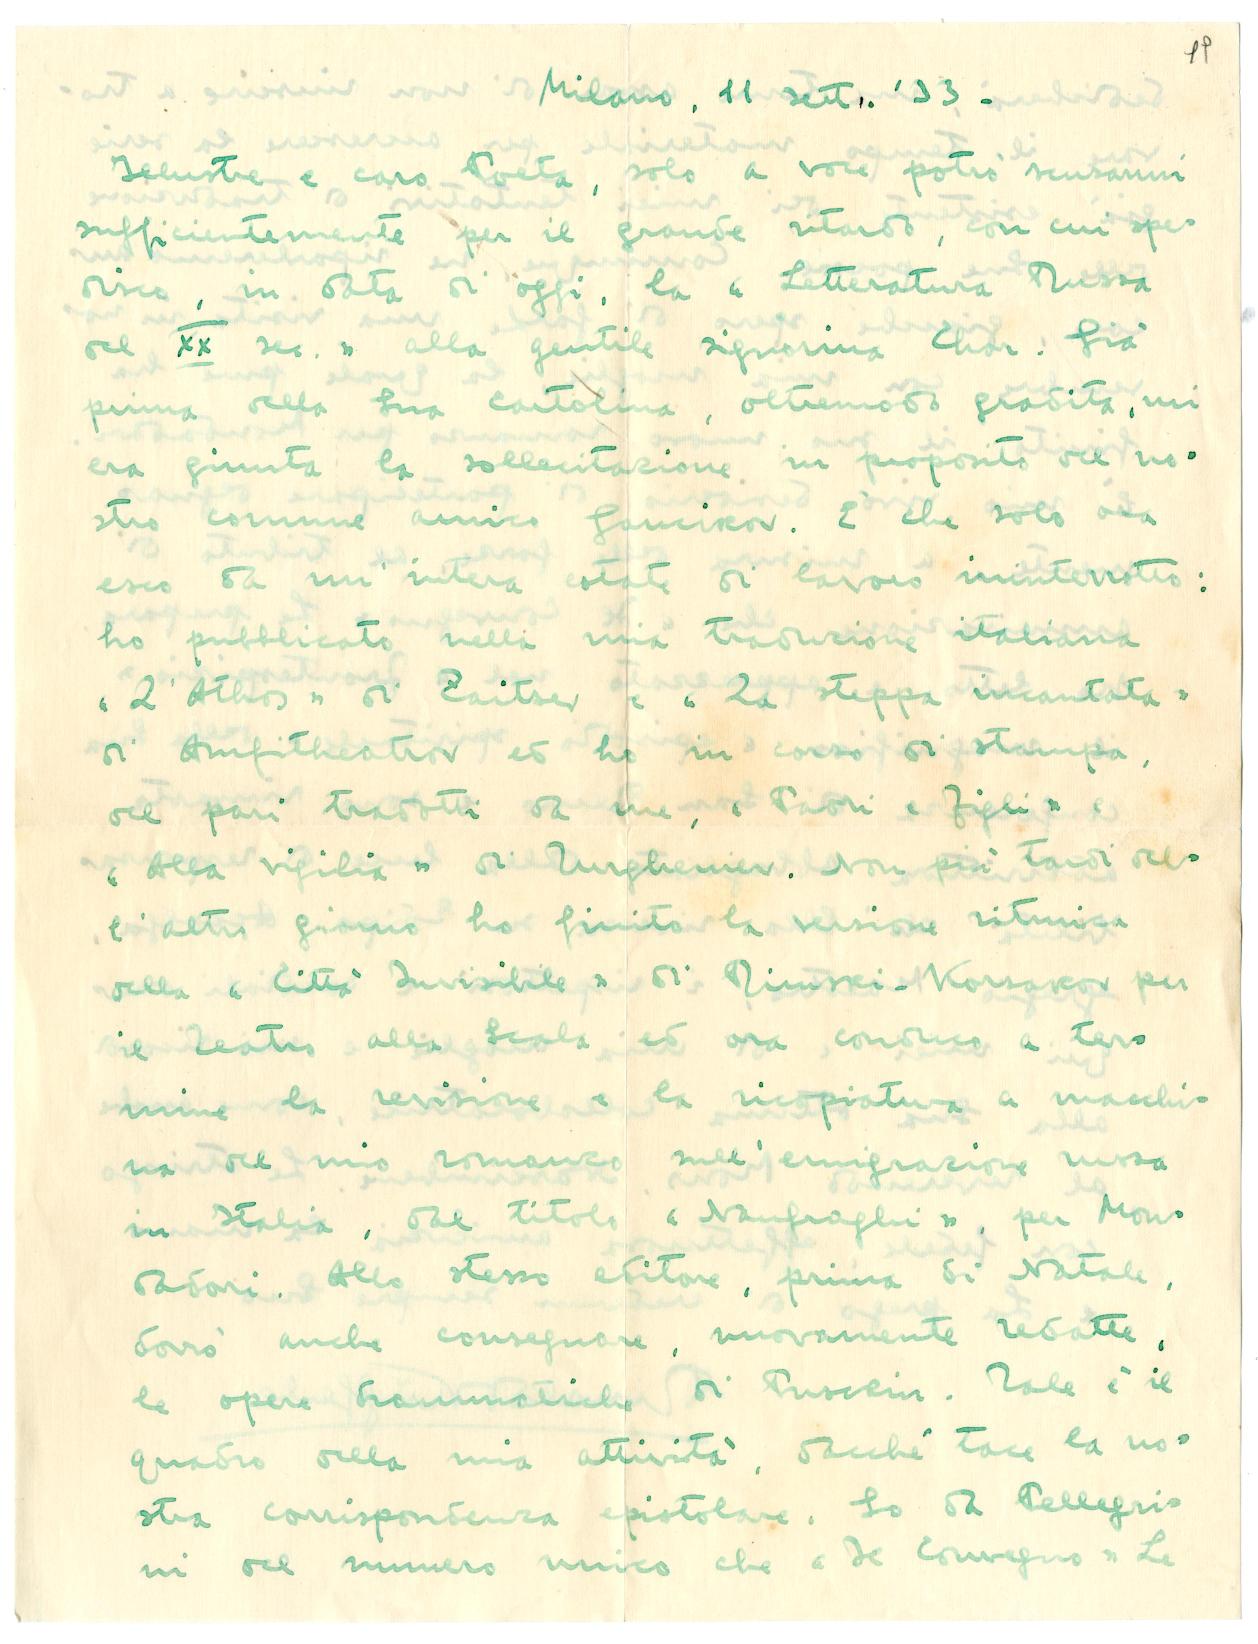 19
Milano, 11 sett. '33 -
Illustre e caro Poeta, solo a voce potrò scusarmi
sufficientemente per il grande ritardo, con cui spe-
disco, in data di oggi, la « Letteratura Russa
del XX sec. » alla gentile signorina Chor. Già
prima della Sua cartolina, oltremodo gradita, mi
era giunta la sollecitazione in proposito del no-
stro comune amico Gancikov. È che solo ora
esco da un' intera estate di lavoro ininterrotto:
ho pubblicato nella mia traduzione italiana
« L'Athos » di Zaitsev e « La steppa incantata »
di Amfitheatrov ed ho in corso di stampa,
del pari tradotti da me, « Padri e Figli » e
« Alla vigilia » di Turgheniev. Non più tardi del-
l'altro giorno ho finito la versione ritmica
della « Città Invisibile » di Rimski-Korsakov per
il Teatro alla Scala ed ora conduco a ter-
mine la revisione e la ricopiatura a macchi-
na del mio romanzo sull'emigrazione russa
in Italia, dal titolo « Naufraghi », per Mon-
dadori. Allo stesso editore, prima di Natale,
dovrò anche consegnare, nuovamente redatte,
le opere drammatiche di Pusckin. Tale è il
quadro della mia attività, dacché tace la no-
stra corrispondenza epistolare. So da Pellegri-
ni del numero unico che « Il Convegno » Le